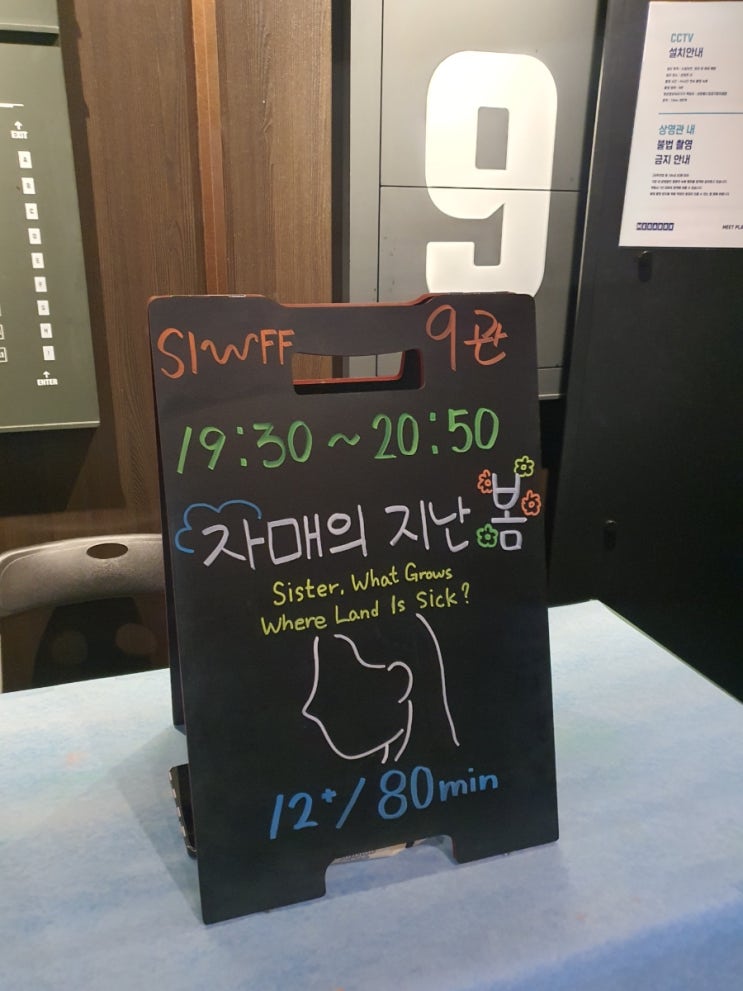 9
CCTV
설치안내
상영관 내
불법 촬영
금지 안내
MEGABOX
MEET PLA
EXIT
A
B
C
D
E
F
G
H
I
ENTER
SIWFF 9관
19:30 ~ 20:50
자매의 지난 봄
Sister, What Grows
Where Land Is Sick?
12+/ 80min